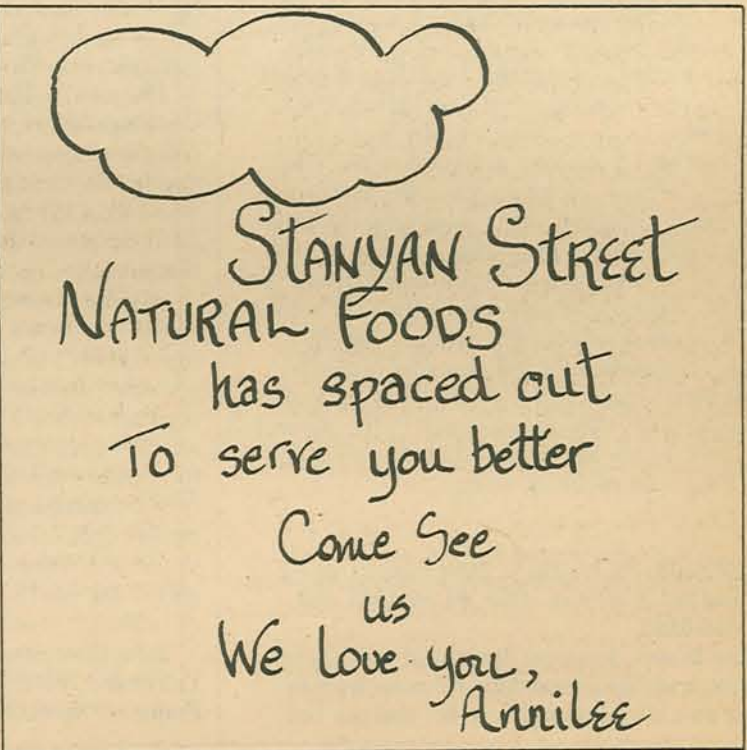 STANYAN STREET
NATURAL FOODS
has spaced out
To serve you better
Come See
us
We love you,
Annilee